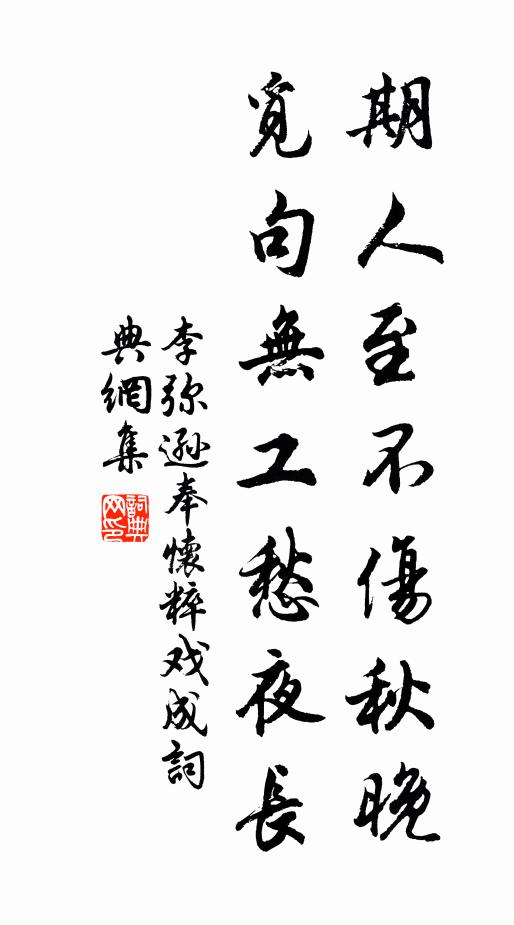 期人至不傷秋晚
覓句無工愁夜長
李弥遜奉懷粹戏成詞
典網集
詞典
网印